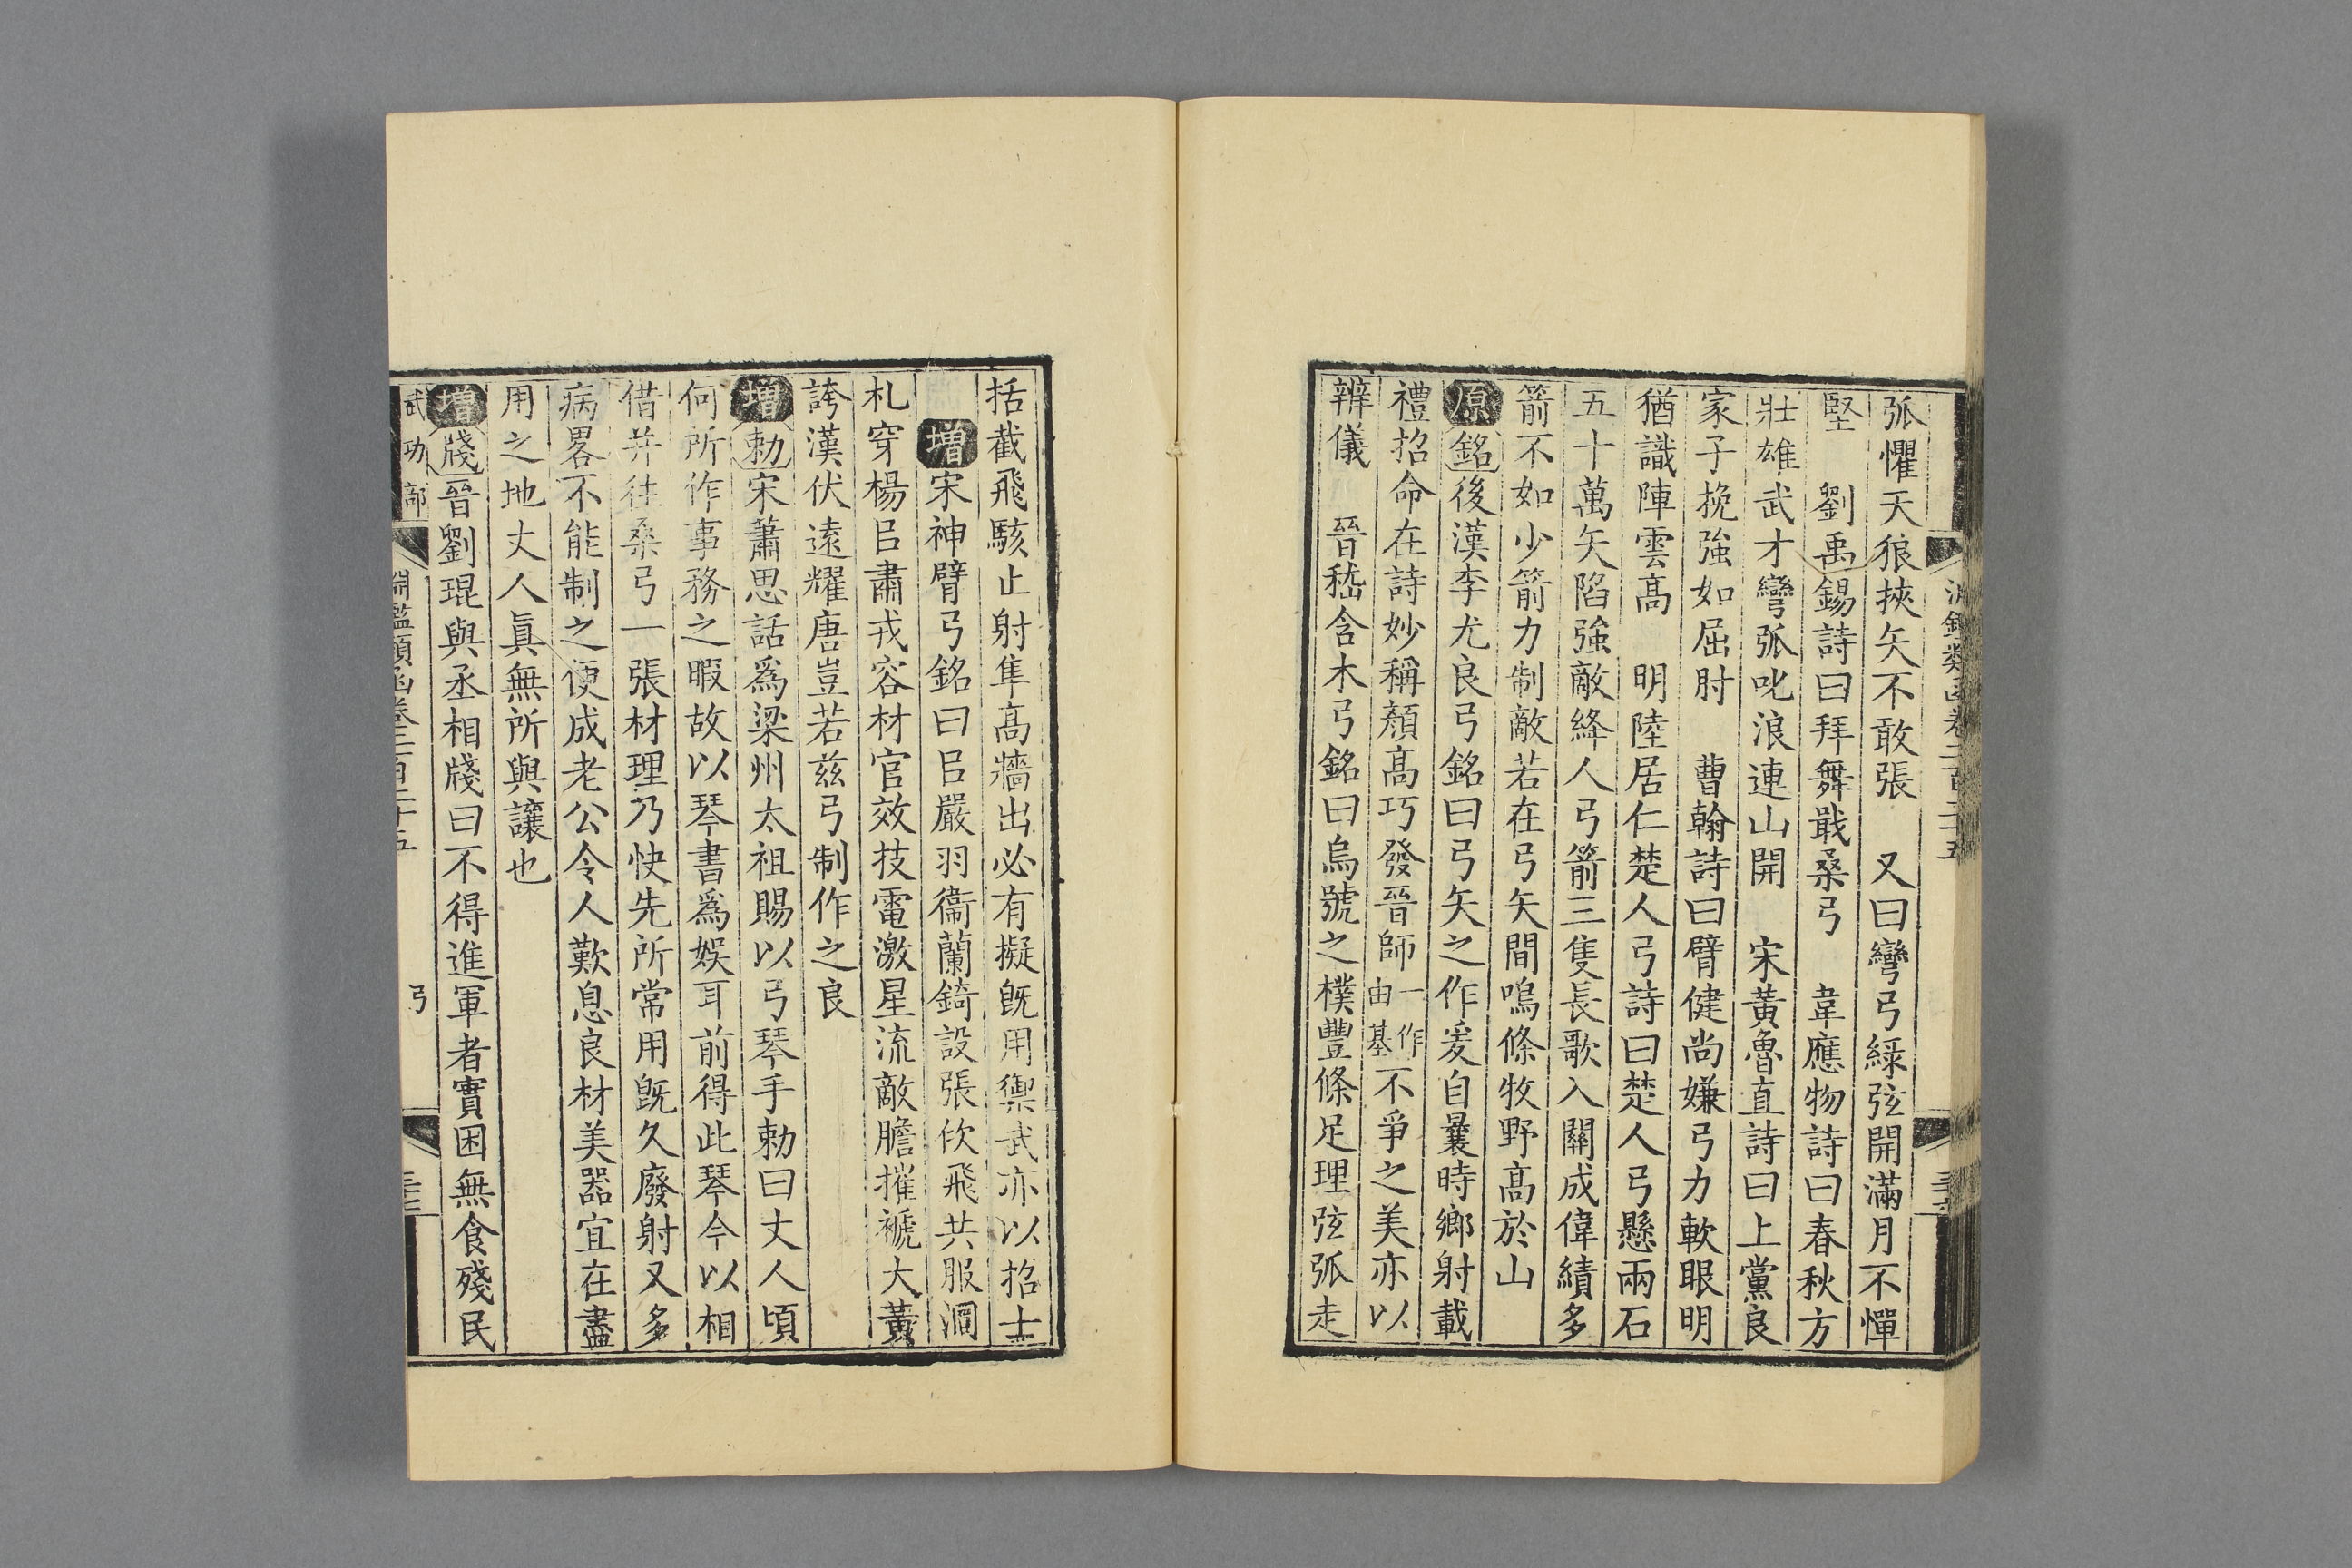 弧懼天狼挾矢不敢張　又曰彎弓綠弦開滿月不憚
堅　劉禹錫詩曰拜舞戢桑弓　韋應物詩曰春秋方
壯雄武才彎弧叱浪連山開　宋黃魯直詩曰上黨良
家子挽強如屈肘　曹翰詩曰臂健尚嫌弓力軟眼明
猶識陣雲髙　明陸居仁楚人弓詩曰楚人弓懸兩石
五十萬矢陷強敵絳人弓箭三隻長歌入關成偉績多
箭不如少箭力制敵若在弓矢間嗚條牧野髙於山
原銘後漢李尤良弓銘曰弓矢之作爰自曩時鄉射載
禮招命在詩妙稱顏髙巧發晉師一作由基不爭之美亦以
辨儀　晉嵇含木弓銘曰烏號之樸豐條足理弦弧走
括截飛駭止射隼髙牆出必有擬旣用禦武亦以招士
增宋神臂弓銘曰㠯嚴羽衞蘭錡設張佽飛共服洞
札穿楊㠯肅戎容材官效技電激星流敵膽摧褫大黃
誇漢伏遠耀唐豈若兹弓制作之良
增勅宋蕭思話爲梁州太祖賜以弓琴手勅曰丈人頃
何所作事務之暇故以琴書爲娛耳前得此琴今以相
借并往桑弓一張材理乃快先所常用旣久廢射又多
病畧不能制之便成老公令人歎息良材美器宜在盡
用之地丈人眞無所與讓也
增牋晉劉琨與丞相牋曰不得進軍者實困無食殘民
武功部　淵鑑類函卷二百二十五　弓　三十七